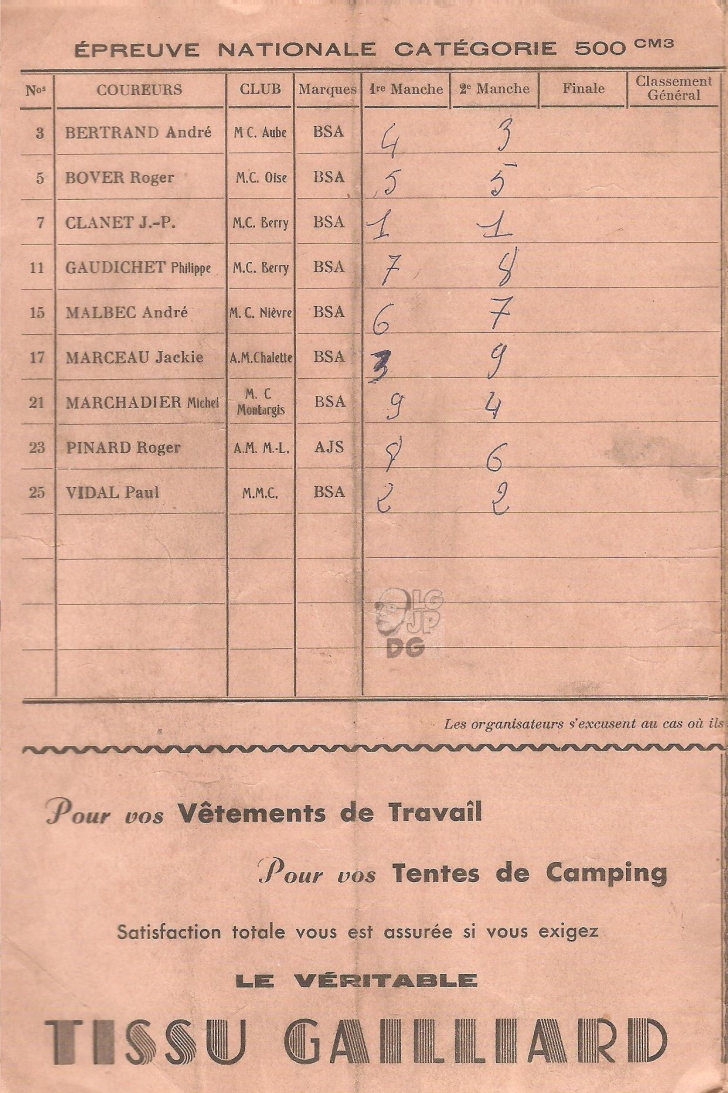 ÉPREUVE NATIONALE CATÉGORIE 500 CM3
Nos COUREURS CLUB Marques 1re Manche 2e Manche Finale Classement Général
3 BERTRAND André M C. Aube BSA 4 3
5 BOVER Roger M.C. Oise BSA 5 5
7 CLANET J.-P. M.C. Berry BSA 1 1
11 GAUDICHET Philippe M.C. Berry BSA 7 8
15 MALBEC André M. C. Nièvre BSA 6 7
17 MARCEAU Jackie A.M.Chalette BSA 3 9
21 MARCHADIER Michel M. C Montargis BSA 9 4
23 PINARD Roger A.M. M.-L. AJS 8 6
25 VIDAL Paul M.M.C. BSA 2 2
LG
JP
DG
Les organisateurs s'excusent au cas où ils
Pour vos Vêtements de Travail
Pour vos Tentes de Camping
Satisfaction totale vous est assurée si vous exigez
LE VÉRITABLE
TISSU GAILLIARD